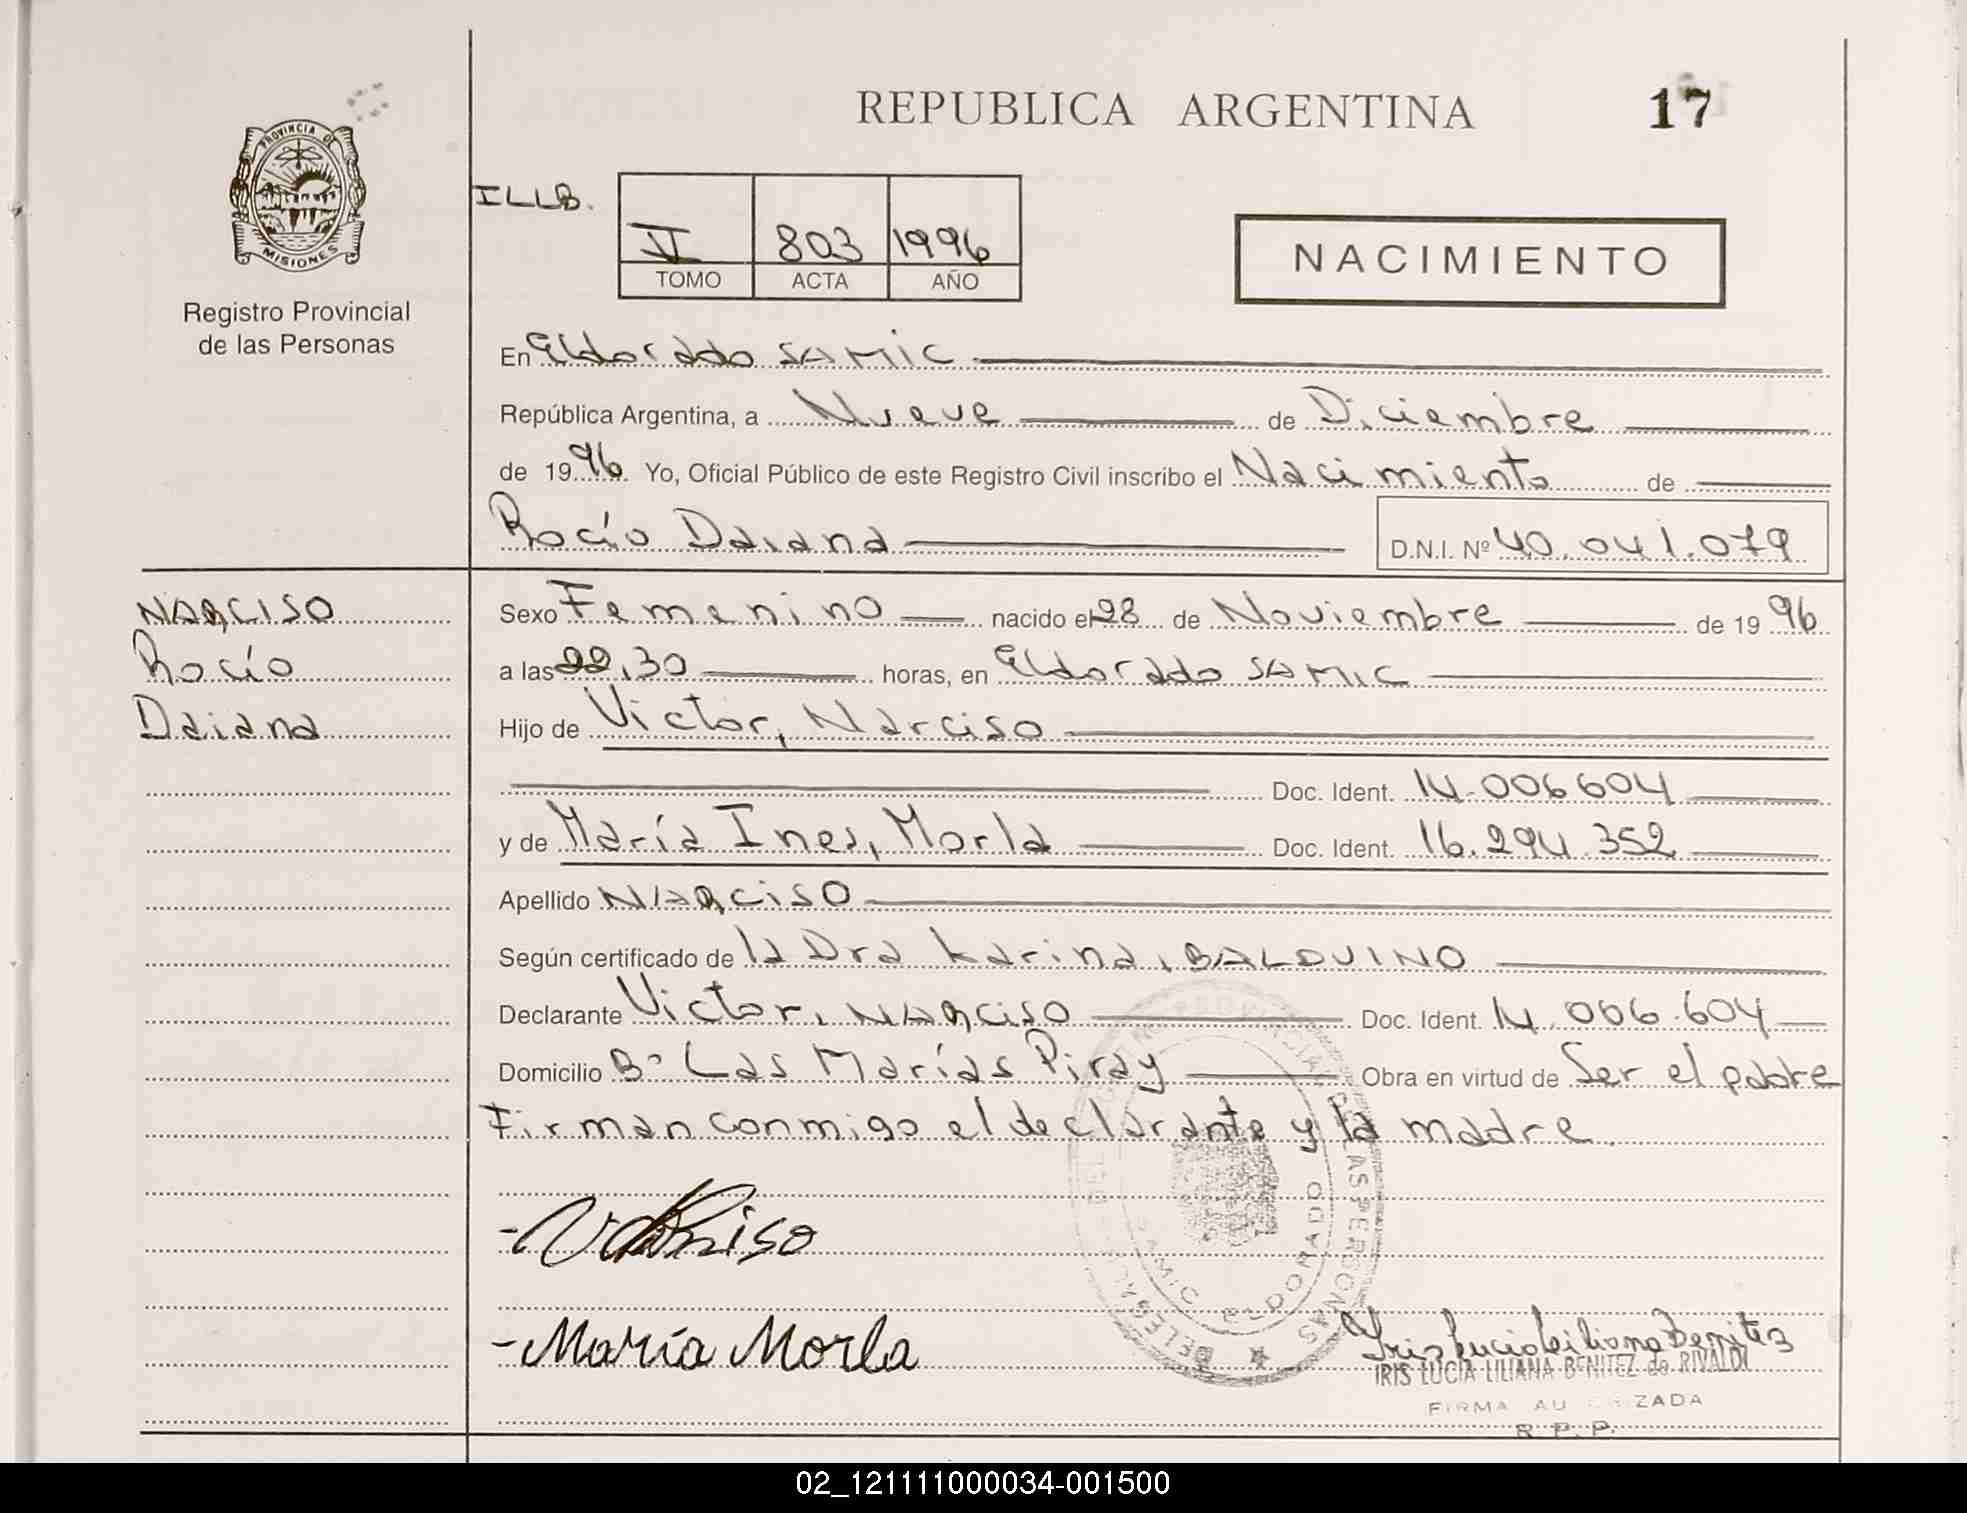 REPUBLICA ARGENTINA
17
PROVINCIA DE
MISIONES
Registro Provincial
de las Personas
ILLB.
II 803 1996
TOMO ACTA AÑO
NACIMIENTO
En Eldorado SAMIC
República Argentina, a Nueve de Diciembre
de 1996 Yo, Oficial Público de este Registro Civil inscribo el Nacimiento de
Rocío Daiana D.N.I. Nº 40.041.079
NARCISO
Rocío
Daiana
Sexo Femenino nacido el 28 de Noviembre de 1996
a las 22,30 horas, en Eldorado SAMIC
Hijo de Victor, Narciso
Doc. Ident. 14.006604
y de María Ines, Morla Doc. Ident. 16.294.352
Apellido NARCISO
Según certificado de la Dra Karina, BALDUINO
Declarante Victor, NARCISO Doc. Ident. 14.006.604
Domicilio Bº Las Marías Piray Obra en virtud de Ser el padre
Firman conmigo el declarante y la madre.
- María Morla
Iris Lucia Liliana Benitez
IRIS LUCIA LILIANA BENITEZ de RIVALDI
FIRMA
R.P.P.
SAMIC ELDORADO
02_121111000034-001500